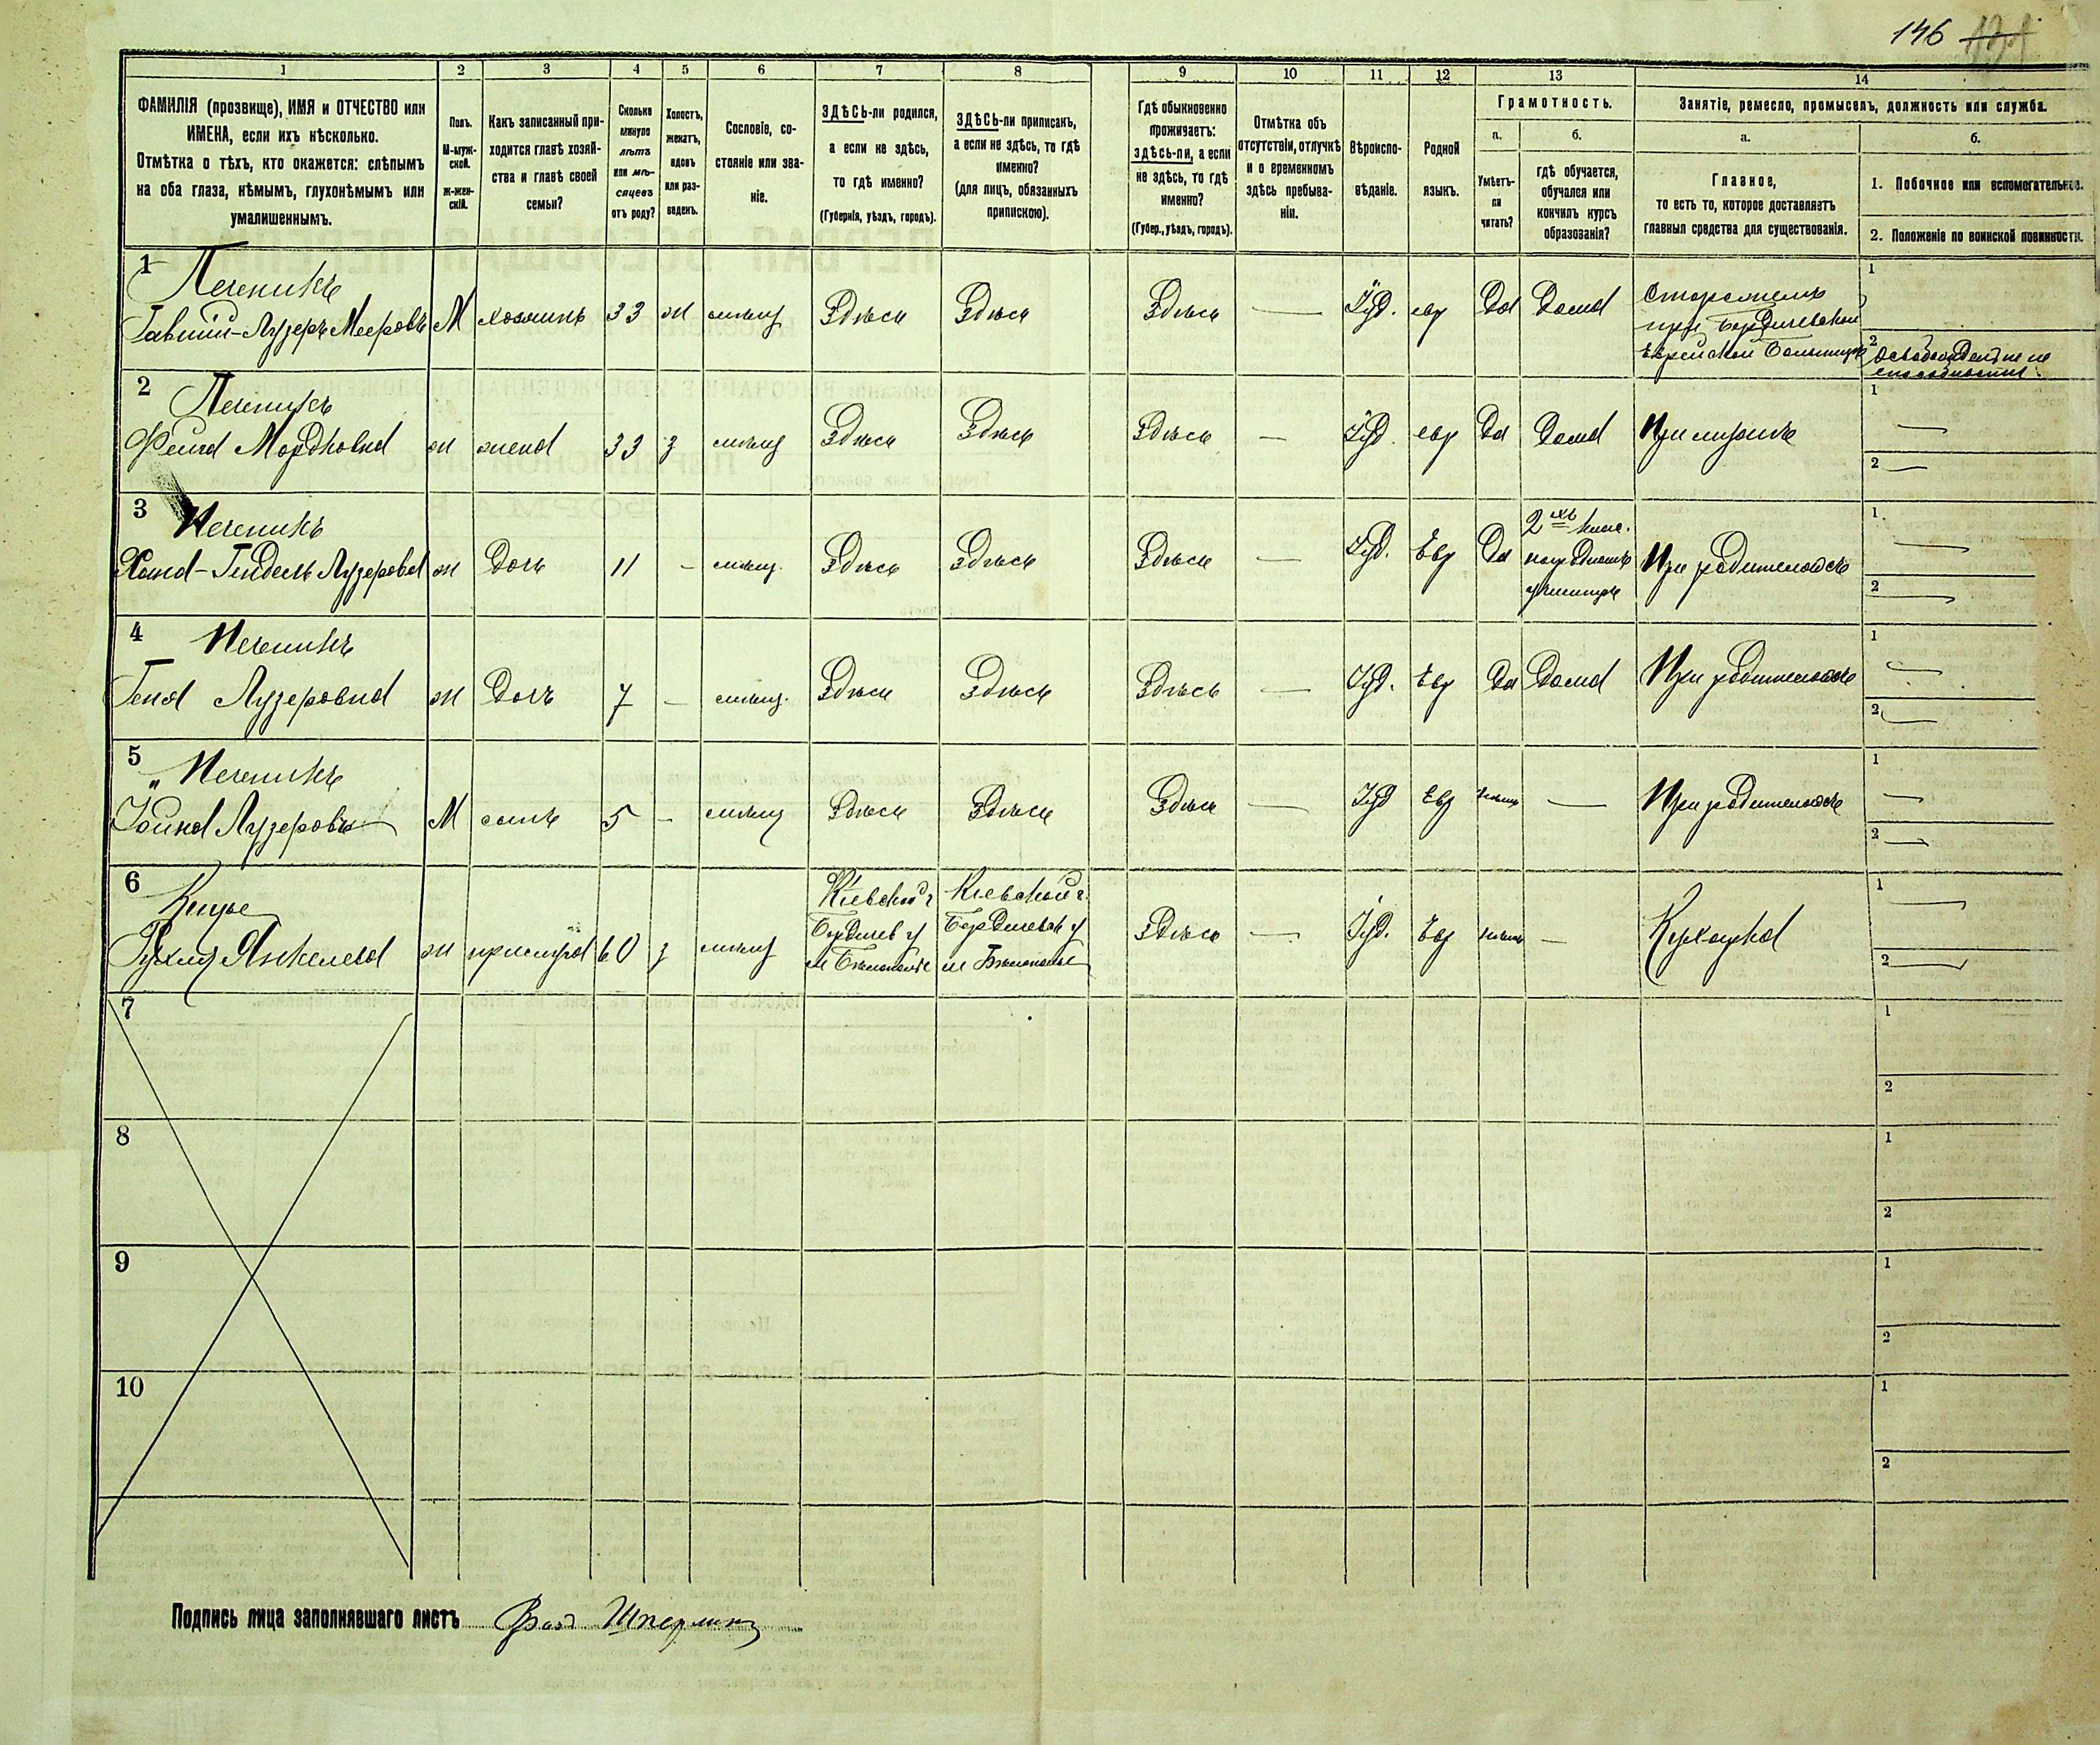 146
1 2 3 4 5 6 7 8 9 10 11 12 13 14
ФАМИЛІЯ (прозвище), ИМЯ и ОТЧЕСТВО или
ИМЕНА, если ихъ нѣсколько.
Отмѣтка о тѣхъ, кто окажется: слѣпымъ
на оба глаза, нѣмымъ, глухонѣмымъ или
умалишеннымъ.
Полъ.
М-муж-
ской.
Ж-жен-
скій.
Какъ записанный при-
ходится главѣ хозяй-
ства и главѣ своей
семьи?
Сколько
минуло
лѣтъ
или мѣ-
сяцевъ
отъ роду?
Холостъ,
женатъ,
вдовъ
или раз-
веденъ.
Сословіе, со-
стояніе или зва-
ніе.
ЗДѢСЬ-ли родился,
а если не здѣсь,
то гдѣ именно?
(Губернія, уѣздъ, городъ).
ЗДѢСЬ-ли приписанъ,
а если не здѣсь, то гдѣ
именно?
(для лицъ, обязанныхъ
припискою).
Гдѣ обыкновенно
проживаетъ:
ЗДѢСЬ-ЛИ, а если
не здѣсь, то гдѣ
именно?
(Губер., уѣздъ, городъ).
Отмѣтка объ
отсутствіи, отлучкѣ
и о временномъ
здѣсь пребыва-
ніи.
Вѣроиспо-
вѣданіе.
Родной
языкъ.
Грамотность.
а.
Умѣетъ-
ли
читать?
б.
гдѣ обучается,
обучался или
кончилъ курсъ
образованія?
Занятіе, ремесло, промыселъ, должность или служба.
а.
Главное,
то есть то, которое доставляетъ
главныя средства для существованія.
б.
1. Побочное или вспомогательное.
2. Положеніе по воинской повинности.
1
Печеникъ
Лузеръ Мееровъ М хозяинъ 33 ж мѣщ Здѣсь Здѣсь Здѣсь — Іуд. евр Да Дома
Сторожемъ
при Бердичевской
Еврейской Больницѣ
1
2
2
Печеникъ
Фейга Мордковна ж жена 33 з мѣщ Здѣсь Здѣсь Здѣсь — Іуд. евр Да Дома При мужѣ
1 —
2 —
3
Печеникъ
Хана-Гендель Лузерова ж Дочь 11 - мѣщ. Здѣсь Здѣсь Здѣсь — Іуд. Евр Да
2хъ клас.
народномъ
училищѣ
При родителяхъ
1 —
2 —
4
Печеникъ
Геня Лузеровна ж Дочь 7 - мѣщ. Здѣсь Здѣсь Здѣсь — Іуд. Евр Да Дома При родителяхъ
1 —
2 —
5
„ Печеникъ
Іойна Лузеровъ М сынъ 5 - мѣщ Здѣсь Здѣсь Здѣсь — Іуд Евр — При родителяхъ
1 —
2 —
6
Рухля Янкелева ж прислуга 60 з мѣщ
Кіевской г
Бердичев у
м Бѣлополье
Кіевской г.
Бердичевск у
м Бѣлополье
Здѣсь — Іуд. Евр — Кухарка
1 —
2 —
7
1
2
8
1
2
9
1
2
10
1
2
Подпись лица заполнявшаго листъ